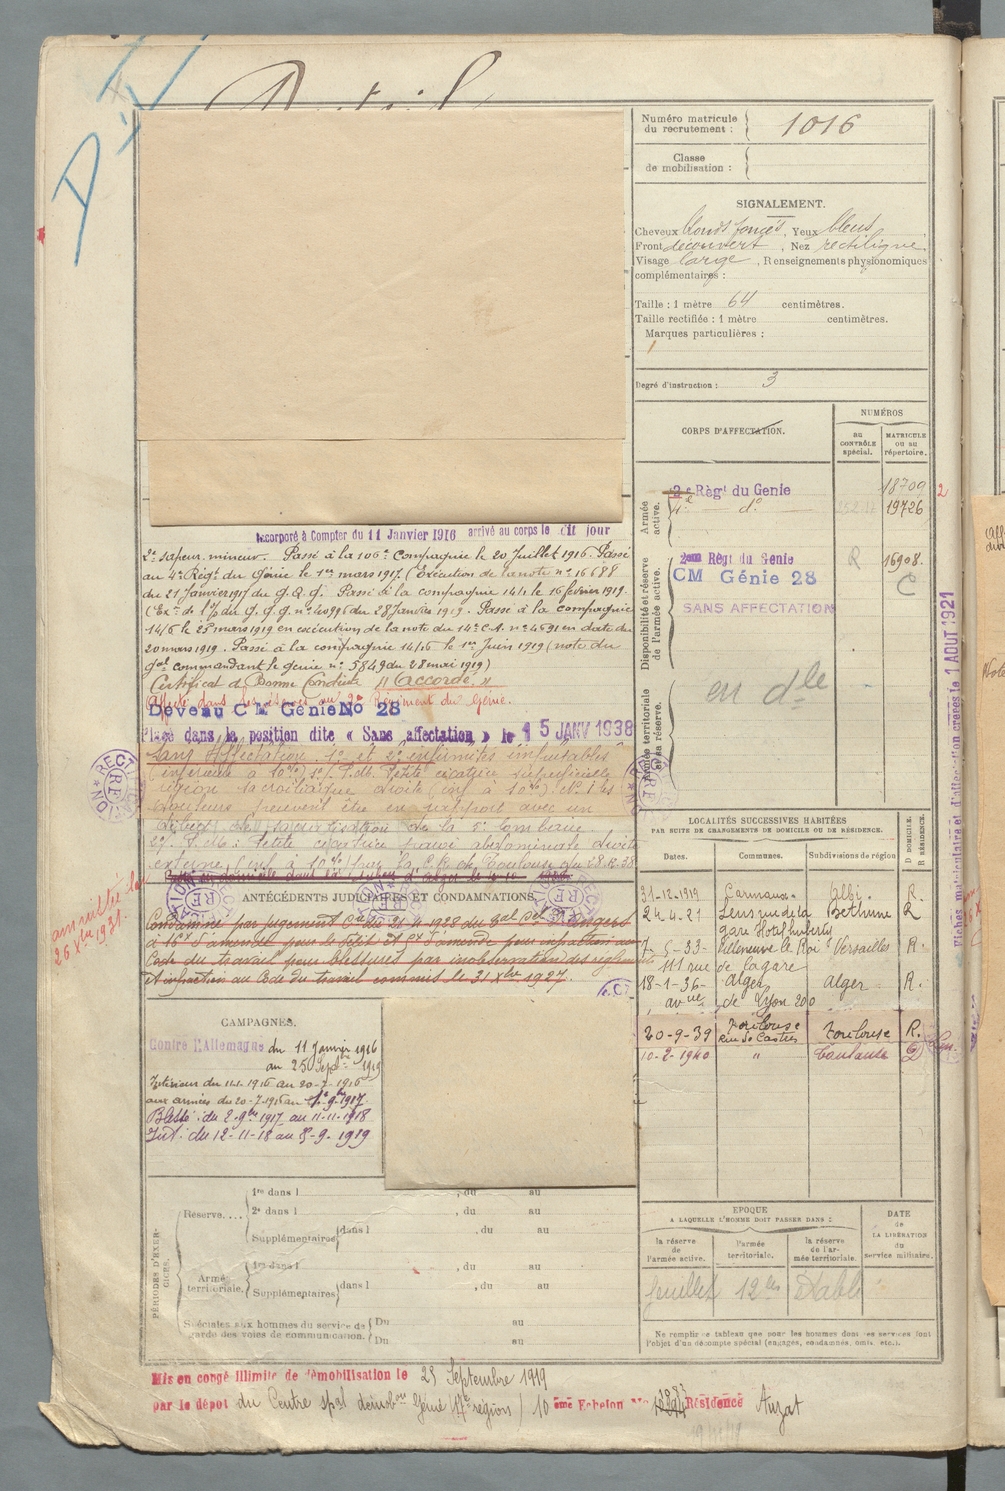 Numéro matricule
du recrutement : 1016
Classe
de mobilisation :
SIGNALEMENT.
Cheveux blonds foncés, Yeux bleus
Front découvert, Nez rectiligne
Visage large, Renseignements physionomiques
complémentaires :
Taille : 1 mètre 64 centimètres.
Taille rectifiée : 1 mètre centimètres.
Marques particulières :
Degré d'instruction : 3
CORPS D'AFFECTATION.
NUMÉROS
au
CONTRÔLE
spécial.
MATRICULE
ou au
répertoire.
Armée
active.
2e Régt du Genie 18709
4e do 19726
Disponibilité et réserve
de l'armée active.
2eme Régt du Genie R 16908
CM Génie 28 C
SANS AFFECTATION
Armée territoriale
et sa réserve.
en dle
Incorporé à Compter du 11 Janvier 1916 arrivé au corps le dit jour
2e sapeur mineur. Passé à la 106e Compagnie le 20 Juillet 1916. Passé
au 4e Régt du Génie le 1er mars 1917. (Exécution de la note no 16688
du 21 Janvier 1917 du G.Q.G. Passé à la compagnie 14/1 le 16 février 1919.
du G.Q.G. no 40996 du 28 Janvier 1919. Passé à la compagnie
14/6 le 25 mars 1919 en exécution de la note du 14e C.A. no 4691 en date du
20 mars 1919. Passé à la compagnie 14/16 le 1er Juin 1919 (note du
gal commandant le génie no 5849 du 28 mai 1919)
Certificat de Bonne Conduite "Accordé"
Affecté dans les réserves au 2e Régiment du Génie.
Devenu CM Génie No 28
Placé dans la position dite « Sans affectation » le 15 JANV 1938
Sans affectation 1o et 2o infirmités imputables
(inférieure à 10%) 1o/ P.db. Petite cicatrice superficielle
région sacroiliaque droite (inf à 10%). N.B. les
douleurs peuvent être en rapport avec un
début de sacralisation de la 5e lombaire
2o/ P.db : Petite cicatrice paroi abdominale droite
externe (inf à 10%) par la C.R. de Toulouse du 28.12.38
ANTÉCÉDENTS JUDICIAIRES ET CONDAMNATIONS.
Condamné par jugement du 21-4-1928 du
à 16f d'amende pour le délit et d'amende pour infraction au
Code du travail pour blessures par inobservation des règlements
et infraction au Code du travail commis le 21 Xbre 1927.
amnistié
26 Xbre 1931
CAMPAGNES.
Contre l'Allemagne du 11 Janvier 1916
au 25 Septbre 1919
Intérieur du 11-1-1916 au 20-7-1916
aux armées du 20-7-1916 au 1-9-1917.
Blessé : du 2-9bre 1917 au 11-11-1918
Int : du 12-11-18 au 5-9-1919
LOCALITÉS SUCCESSIVES HABITÉES
PAR SUITE DE CHANGEMENTS DE DOMICILE OU DE RÉSIDENCE.
Dates. Communes. Subdivisions de région
D DOMICILE.
R RÉSIDENCE.
31-12-1919 Carmaux Albi. R.
24-4-21 Lens rue de la Bethune R
gare Hotel
7-5-33- Villeneuve le Roi Versailles R.
111 rue de la gare
18-1-36- Alger Alger R.
avnue de Lyon 200
20-9-39 Toulouse Toulouse R.
Rue de Castres
10-2-1940 " Toulouse D
PÉRIODES D'EXERCICES.
Réserve....
1re dans l , du au
2e dans l , du au
Supplémentaires dans l , du au
Armée
territoriale.
1re dans l , du au
Supplémentaires dans l , du au
Spéciales aux hommes du service de
garde des voies de communication.
Du au
Du au
EPOQUE
A LAQUELLE L'HOMME DOIT PASSER DANS :
la réserve
de
l'armée active.
l'armée
territoriale.
la réserve
de l'armée territoriale.
DATE
de
LA LIBÉRATION
du
service militaire.
Ne remplir ce tableau que pour les hommes dont les services font
l'objet d'un décompte spécial (engagés, condamnés, omis, etc.).
Mis en congé illimité de démobilisation le 25 Septembre 1919
par le dépôt du Centre spal démobon Génie (17e région) 10 ème Echelon No Résidence Auzat
Fiches matriculaire et d'affectation créées le 1 AOUT 1921